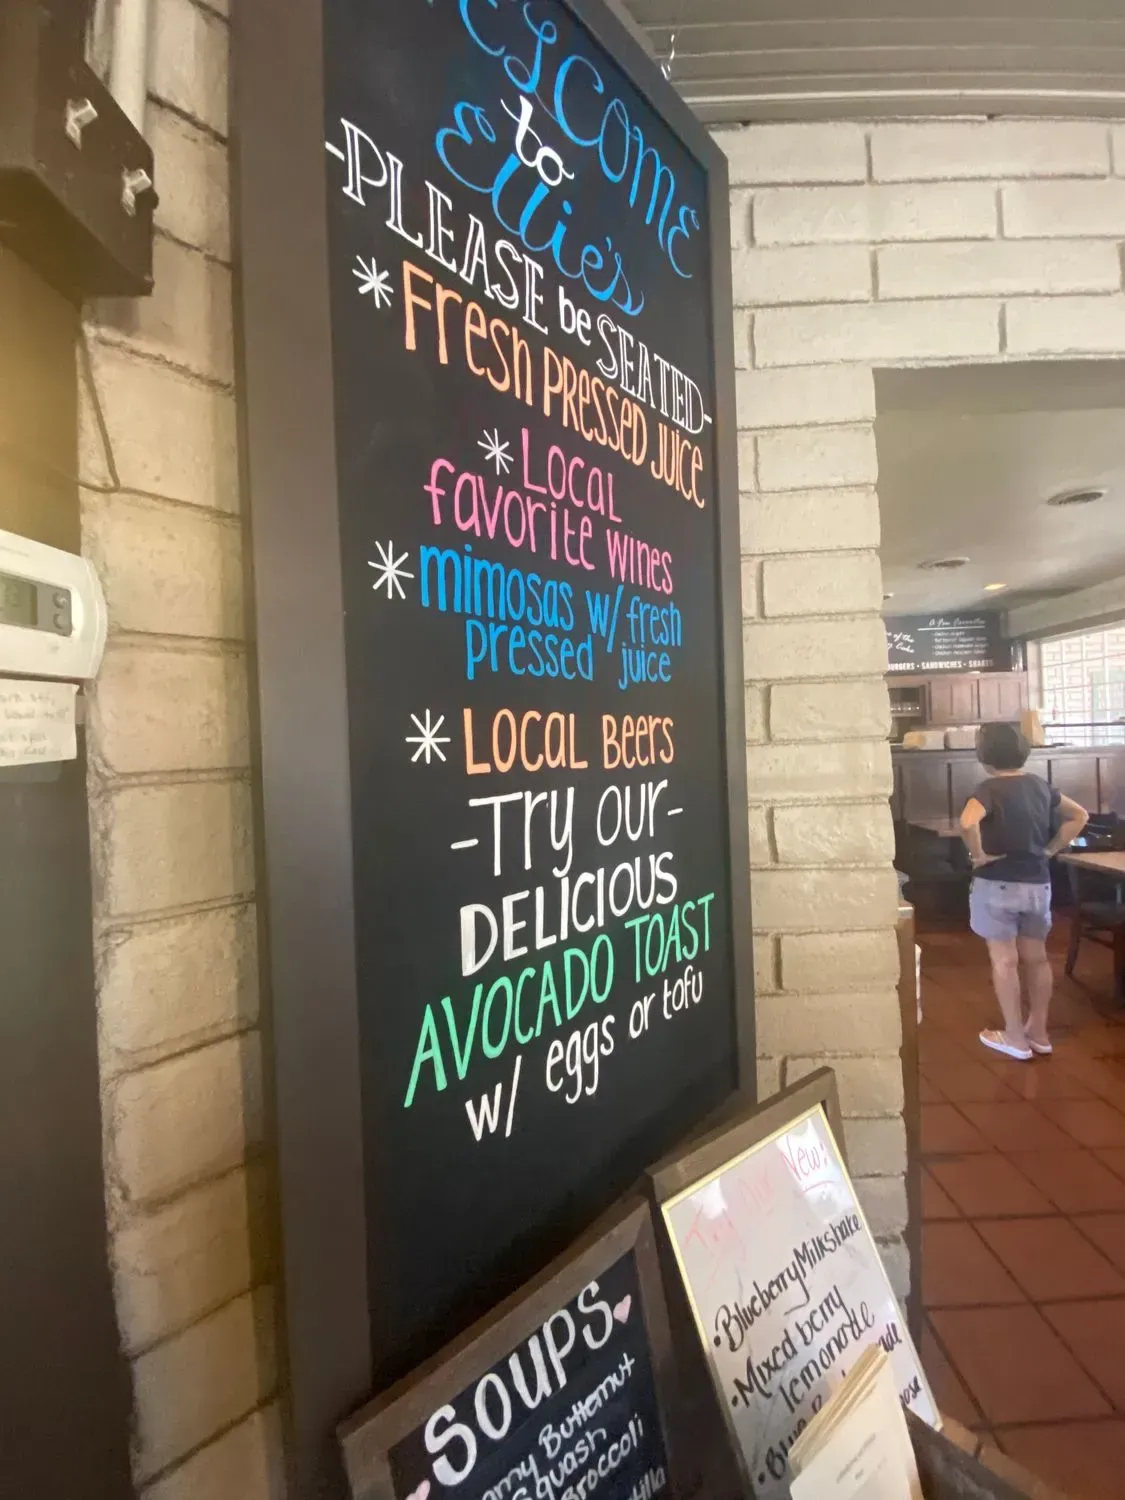 to
Ellie's
-PLEASE be SEATED-
* Fresh PRESSED JUICE
* Local
favorite wines
* mimosas w/ fresh
pressed juice
* LOCAL Beers
-Try our-
DELICIOUS
AVOCADO TOAST
w/ eggs or tofu
SOUPS
Butternut
Squash
Broccoli
Try Our New:
• Blueberry Milkshake
• Mixed berry
lemonade
A Few Favorites
BURGERS - SANDWICHES - SHAKES